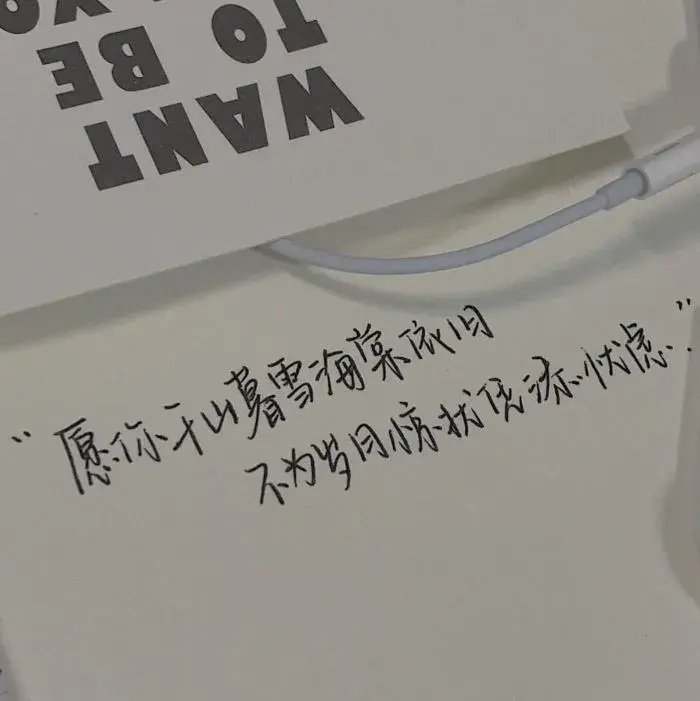 WANT
TO BE
“愿你千山暮雪海棠依旧
不为岁月惊扰凭添忧虑.”